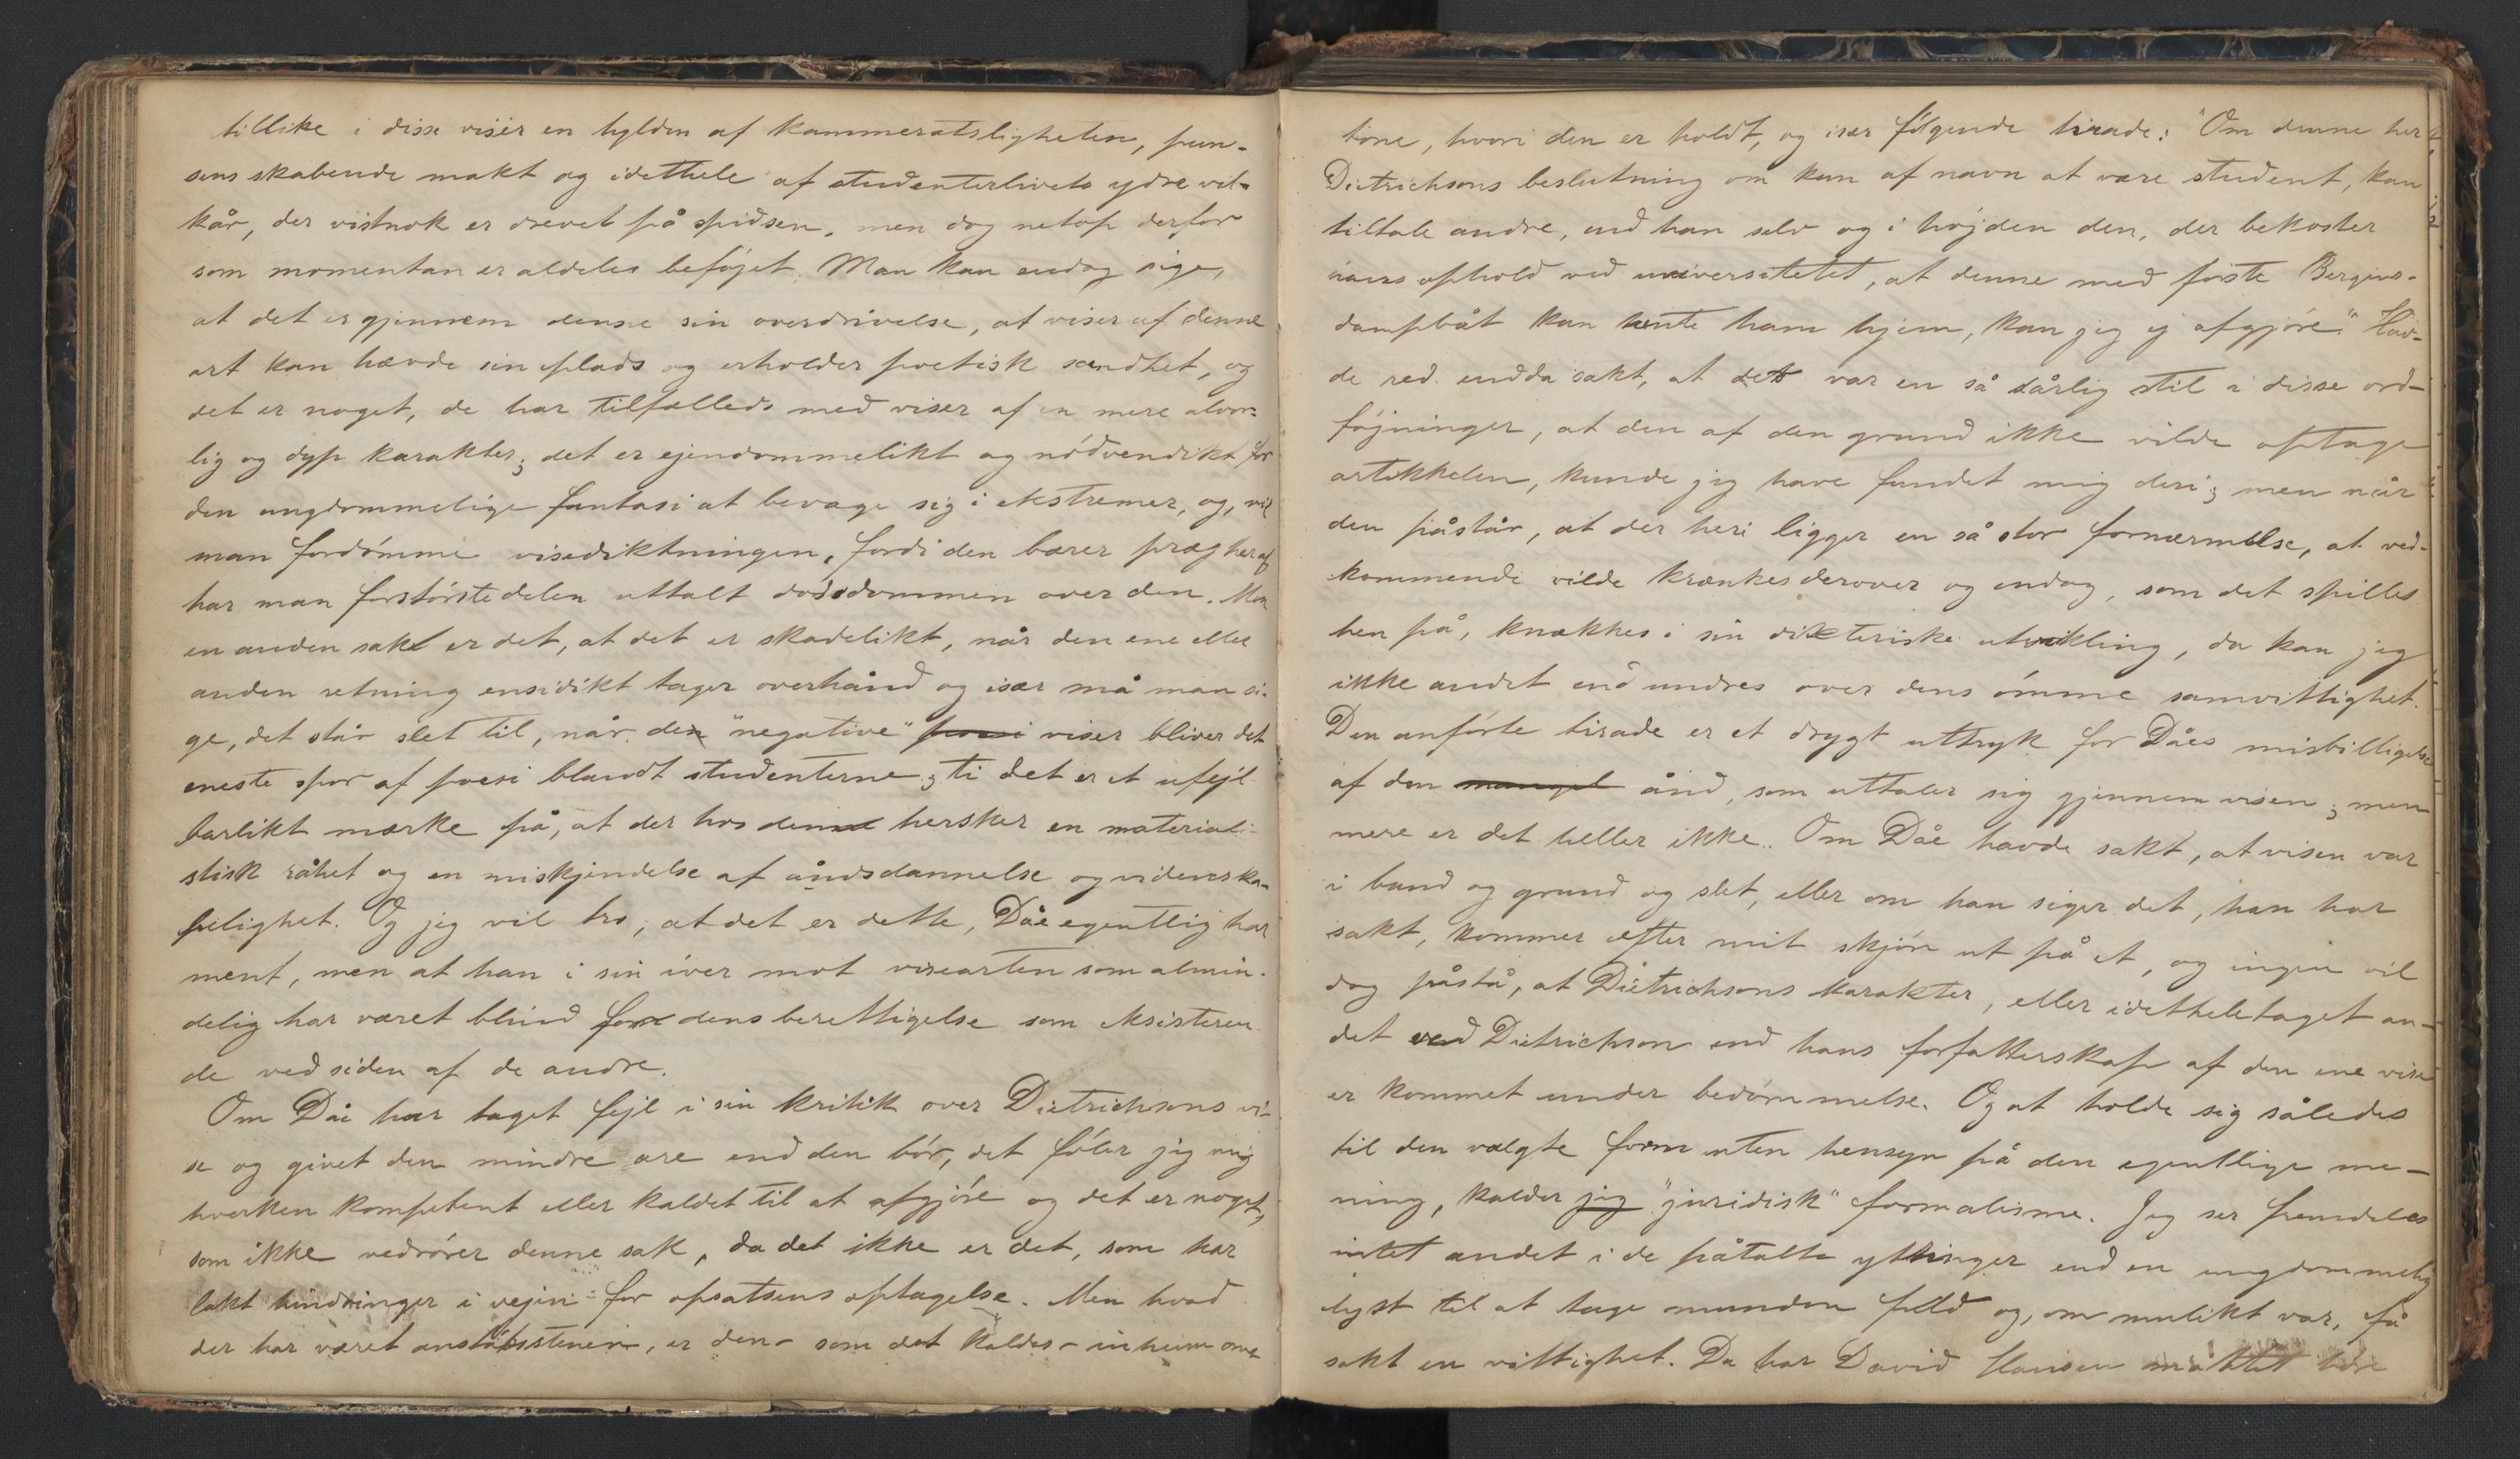 tillike i disse viser en hylden af kammeratsligheten, pun-
sens skabende makt og idethele af studenterlivets ydre vil-
kår, der vistnok er drevet på spidsen, men dog netop derfor
som momentan er aldeles beføjet. Man kan endog sige,
at det er gjennem denne sin overdrivelse, at viser af denne
art kan hævde sin plads og erholder poetisk sandhet, og
det er noget, de har tilfælleds med viser af en mere alvor-
lig og dyp karakter; det er ejendommelikt og nødvendikt for
den ungdommelige fantasi at bevæge sig i ekstremer, og, vil
man fordømme visediktningen, fordi den bærer præg heraf
har man forstørstedelen uttalt dødsdommen over den. Men
en anden sak er det, at det er skadelikt, når den ene eller
anden retning ensidikt tager overhånd og især må man si-
ge, det står slet til, når de "negative" viser bliver det
eneste spor af poesi blandt studenterne; ti det er et ufejl-
barlikt mærke på, at der hos denne hersker en materiali-
stisk råhet og en miskjendelse af åndsdannelse og videnska-
pelighet. Og jeg vil tro, at det er dette, Dåe egentlig har
ment, men at han i sin iver mot visearten som almin-
delig har været blind for dens berettigelse som eksisteren-
de ved siden af de andre.
Om Dåe har taget fejl i sin kritik over Dietrichsons vi-
se og givet den mindre ære end den bør, det føler jeg mig
hverken kompetent eller kaldet til at afgjøre og det er noget,
som ikke vedrører denne sak, da det ikke er det, som har
lakt hindringer i vejen for opsatsens optagelse. Men hvad
der har været anstøtsstenen, er den - som det kaldes - inhumane
tone, hvori den er holdt, og især følgende tirade: "Om denne herr
Dietrichsons beslutning om kun af navn at være student, kan
tiltale andre, end han selv og i højden den, der bekoster
hans ophold ved universitetet, at denne med første Bergens-
dampbåt kan hente ham hjem, kan jeg ej afgjøre." Hav-
de red. endda sakt, at det var en så dårlig stil i disse ord-
føjninger, at den af den grund ikke vilde optage
artikkelen, kunde jeg have fundet mig deri; men når
den påstår, at der heri ligger en så stor fornærmelse, at ved-
kommende vilde krænkes derover og endog, som det spilles
hen på, knækkes i sin dikteriske utvikling, da kan jeg
ikke andet end undres over dens ømme samvittighet.
Den anførte tirade er et drygt uttryk for Dåes misbilligelse
af den mangel ånd, som uttaler sig gjennem visen; men
mere er det heller ikke. Om Dåe havde sakt, at visen var
i bund og grund og slet, eller om han siger det, han har
sakt, kommer efter mit skjøn ut på et, og ingen vil
dog påstå, at Dietrichsons karakter, eller idetheletaget an-
det ved Dietrichson end hans forfatterskap af den ene vise
er kommet under bedømmelse. Og at holde sig således
til den valgte form uten hensyn på den egentlige me-
ning, kalder jeg "juridisk" formalisme. Jeg ser fremdeles
intet andet i de påtalte ytringer end en ungdommelig
lyst til at tage munden fuld og, om mulikt var, få
sakt en vittighet. Da har David Hansen måttet høre